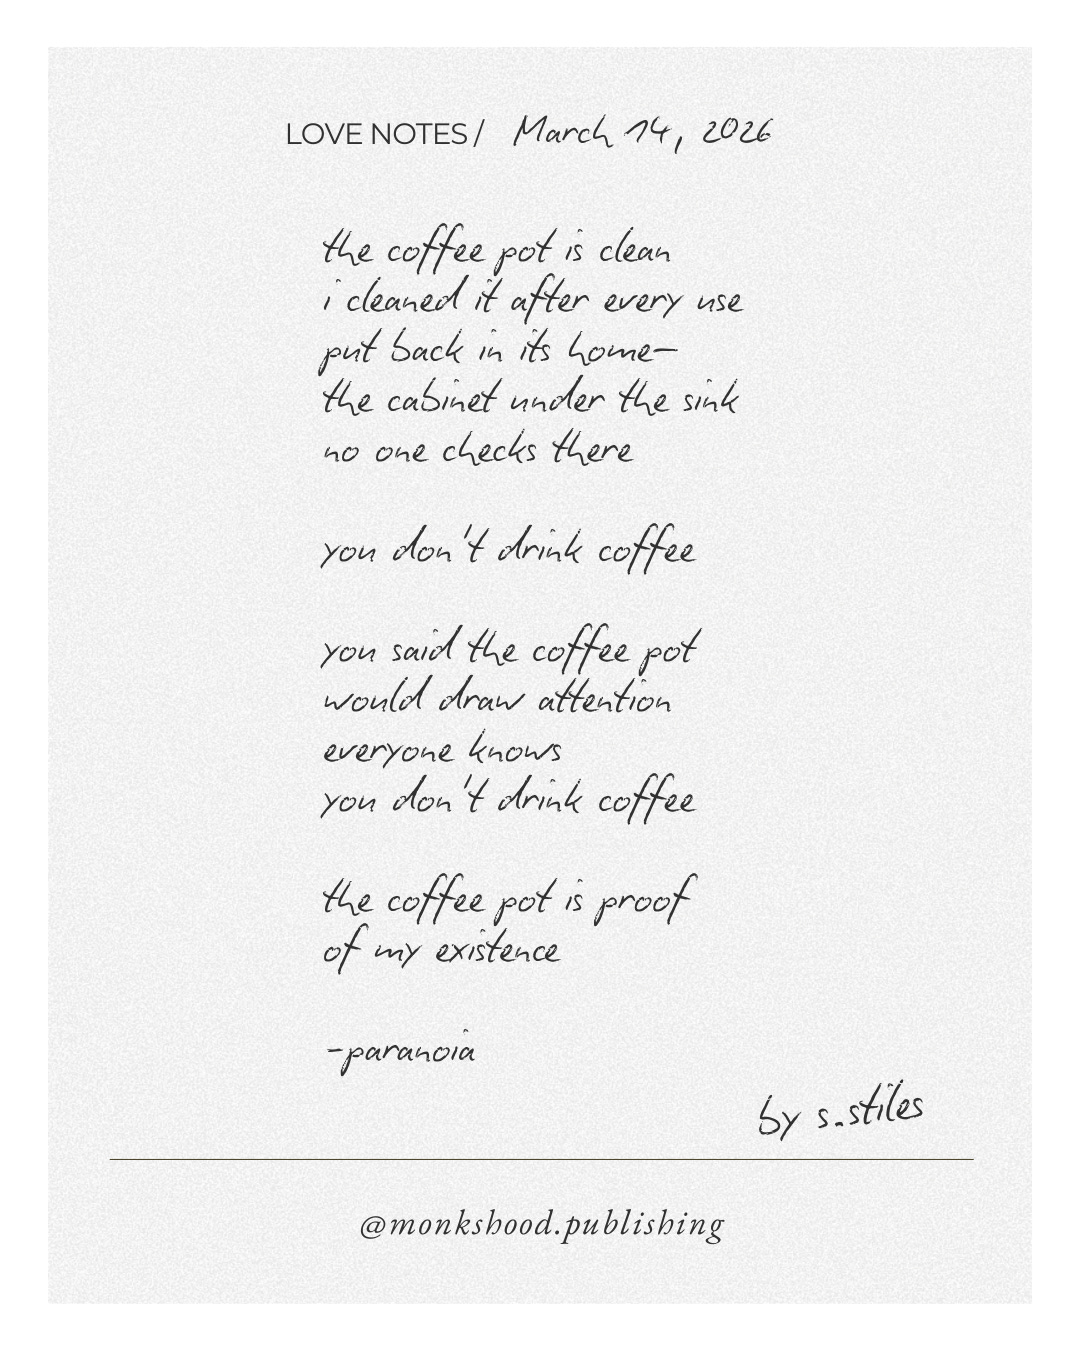 LOVE NOTES / March 14, 2026
the coffee pot is clean
i cleaned it after every use
put back in its home—
the cabinet under the sink
no one checks there
you don't drink coffee
you said the coffee pot
would draw attention
everyone knows
you don't drink coffee
the coffee pot is proof
of my existence
-paranoia
by s.stiles
@monkshood.publishing